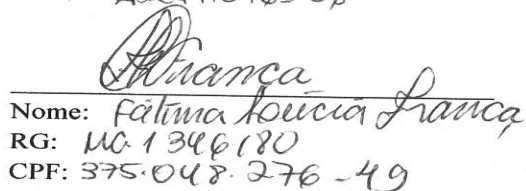 França
Nome: Fátima Lúcia França
RG: MG 1346180
CPF: 375.048.276-49